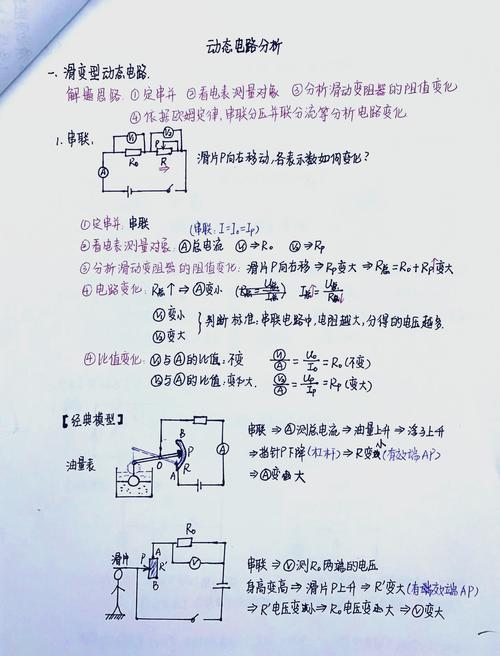 动态电路分析
一、滑变型动态电路.
解题思路: ①定串并 ②看电表测量对象 ③分析滑动变阻器的阻值变化
④依据欧姆定律,串联分压并联分流等分析电路变化
1.串联.
V₁ V₂
R₀ P R
A
滑片P向右移动,各表示数如何变化?
①定串并: 串联 (串联: I=I₀=Ip)
②看电表测量对象: Ⓐ总电流 V₁⇒R₀ V₂⇒Rp
③分析滑动变阻器的阻值变化: 滑片P向右移⇒Rp变大⇒R总=R₀+Rp↑变大
④电路变化: R总↑⇒Ⓐ变小 (R总=U总/I总) I总↓=U总/R总↑
V₁变小
V₂变大
判断标准:串联电路中,电阻越大,分得的电压越多.
④比值变化: V₁与Ⓐ的比值:不变 V₁/A=U₀/I₀=R₀(不变)
V₂与Ⓐ的比值:变大. V₂/A=Up/Ip=Rp(变大)
【经典模型】
油量表
B P R A O A
串联⇒Ⓐ测总电流⇒油量上升⇒浮子上升
⇒指针P下降(杠杆)⇒R变小(有效端AP)
⇒Ⓐ变大
滑片 P A R' B
R₀ V
串联⇒Ⓥ测R₀两端的电压
身高变高⇒滑片P上升⇒R'变大(有效端AP)
⇒R'电压变⇒R₀电压变大⇒Ⓥ变大